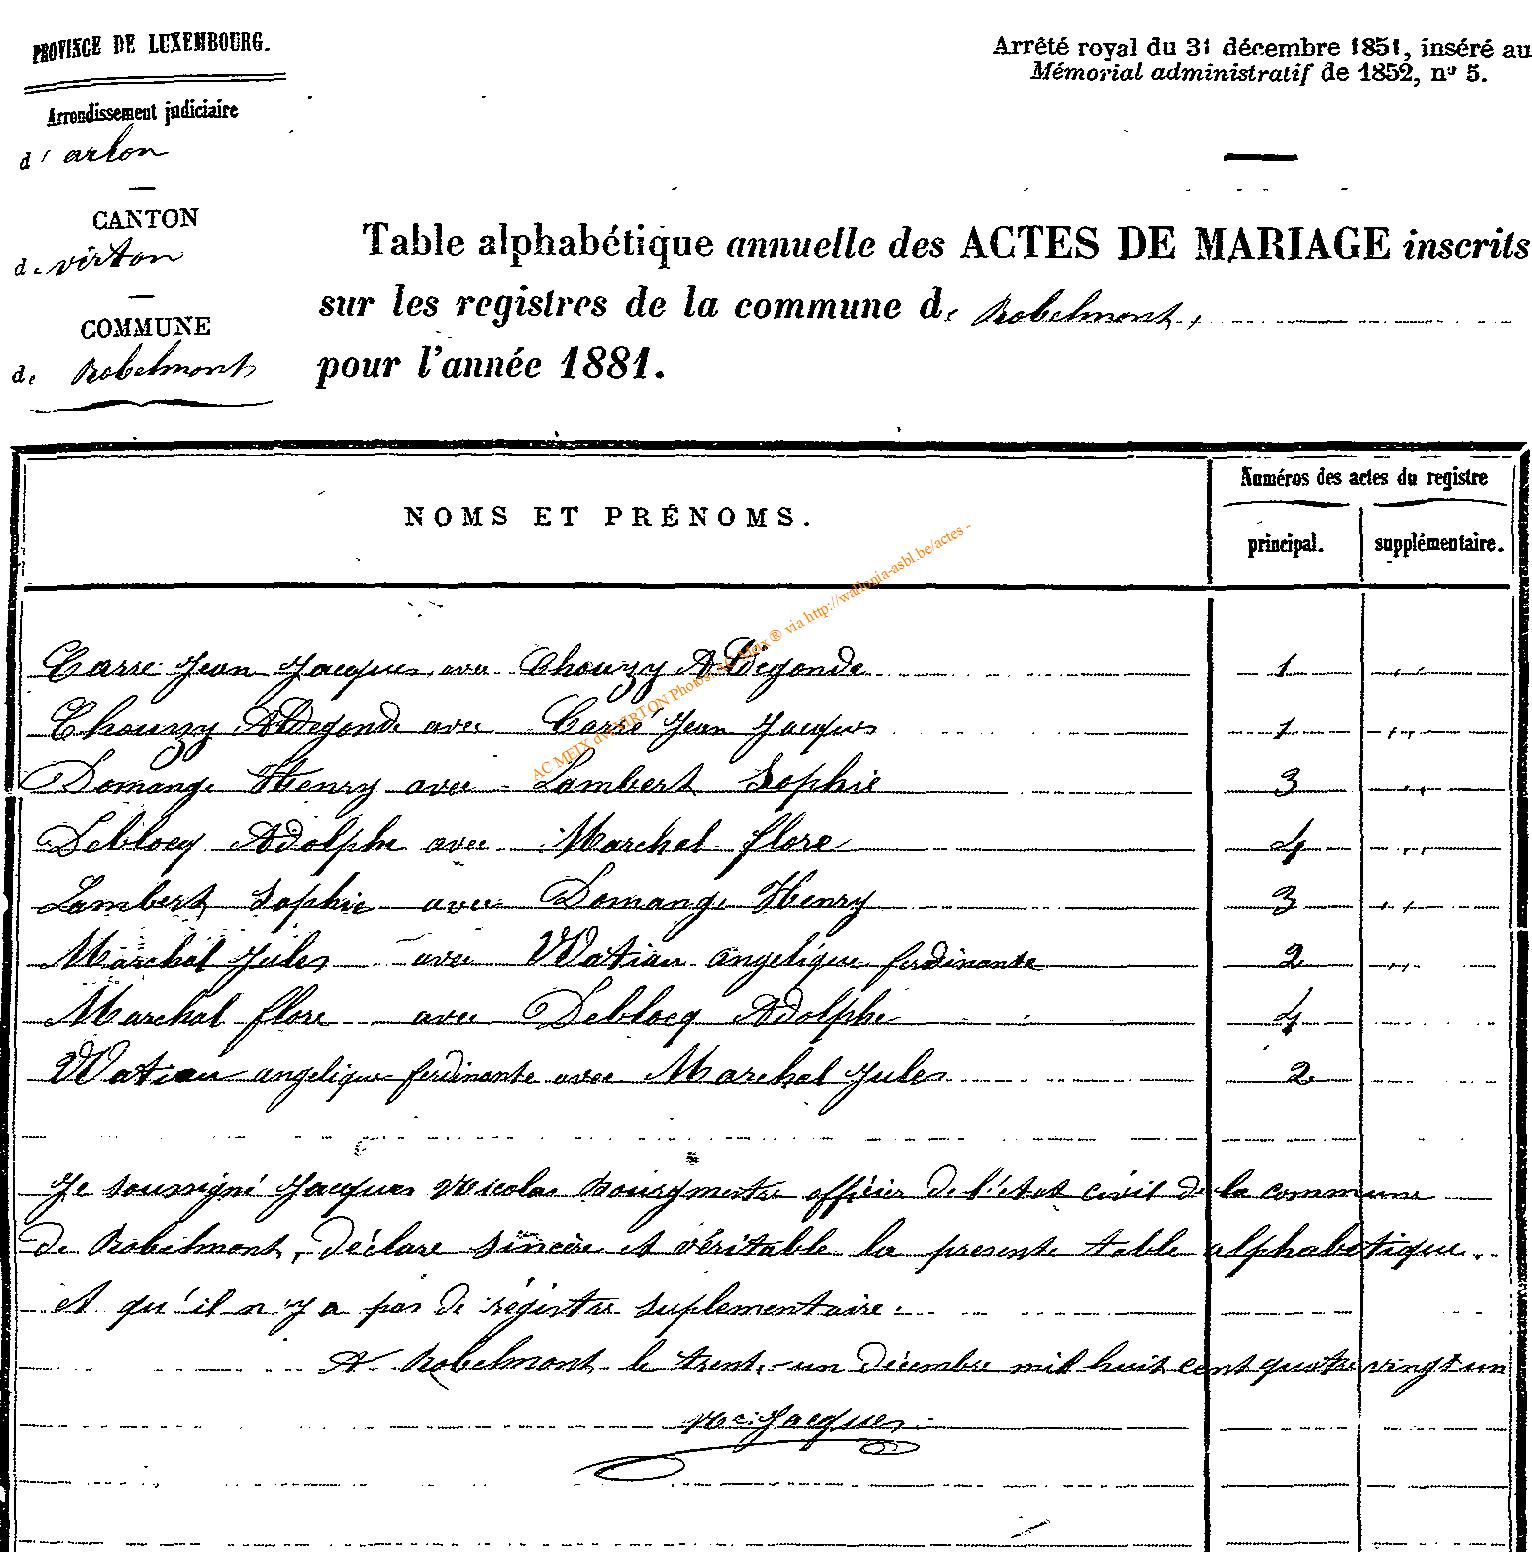 PROVINCE DE LUXEMBOURG.
Arrondissement judiciaire
d'arlon
CANTON
de virton
COMMUNE
de Robelmont
Arrêté royal du 31 décembre 1851, inséré au
Mémorial administratif de 1852, nº 5.
Table alphabétique annuelle des ACTES DE MARIAGE inscrits
sur les registres de la commune de Robelmont,
pour l'année 1881.
NOMS ET PRÉNOMS.
Numéros des actes du registre
principal. supplémentaire.
Carré Jean Jacques avec Chouzy Aldegonde 1 ,,
Chouzy Aldegonde avec Carré Jean Jacques 1 ,,
Domange Henry avec Lambert Sophie 3 ,,
Deblocq Adolphe avec Marchal flore 4 ,,
Lambert Sophie avec Domange Henry 3 ,,
Marchal Jules avec Watiau angelique ferdinante 2 ,,
Marchal flore avec Deblocq Adolphe 4
Watiau angelique ferdinante avec Marchal Jules 2
Je soussigné Jacques Nicolas Bourgmestre officier de l'état civil de la commune
de Robelmont, déclare sincère et véritable la presente table alphabetique.
et qu'il n'y a pas de régistre suplementaire.
A Robelmont le trente-un décembre mil huit cent quatre vingt un
Nc. Jacques
AC MEIX dvt VIRTON Photos ® via http://wallonia-asbl.be/actes -